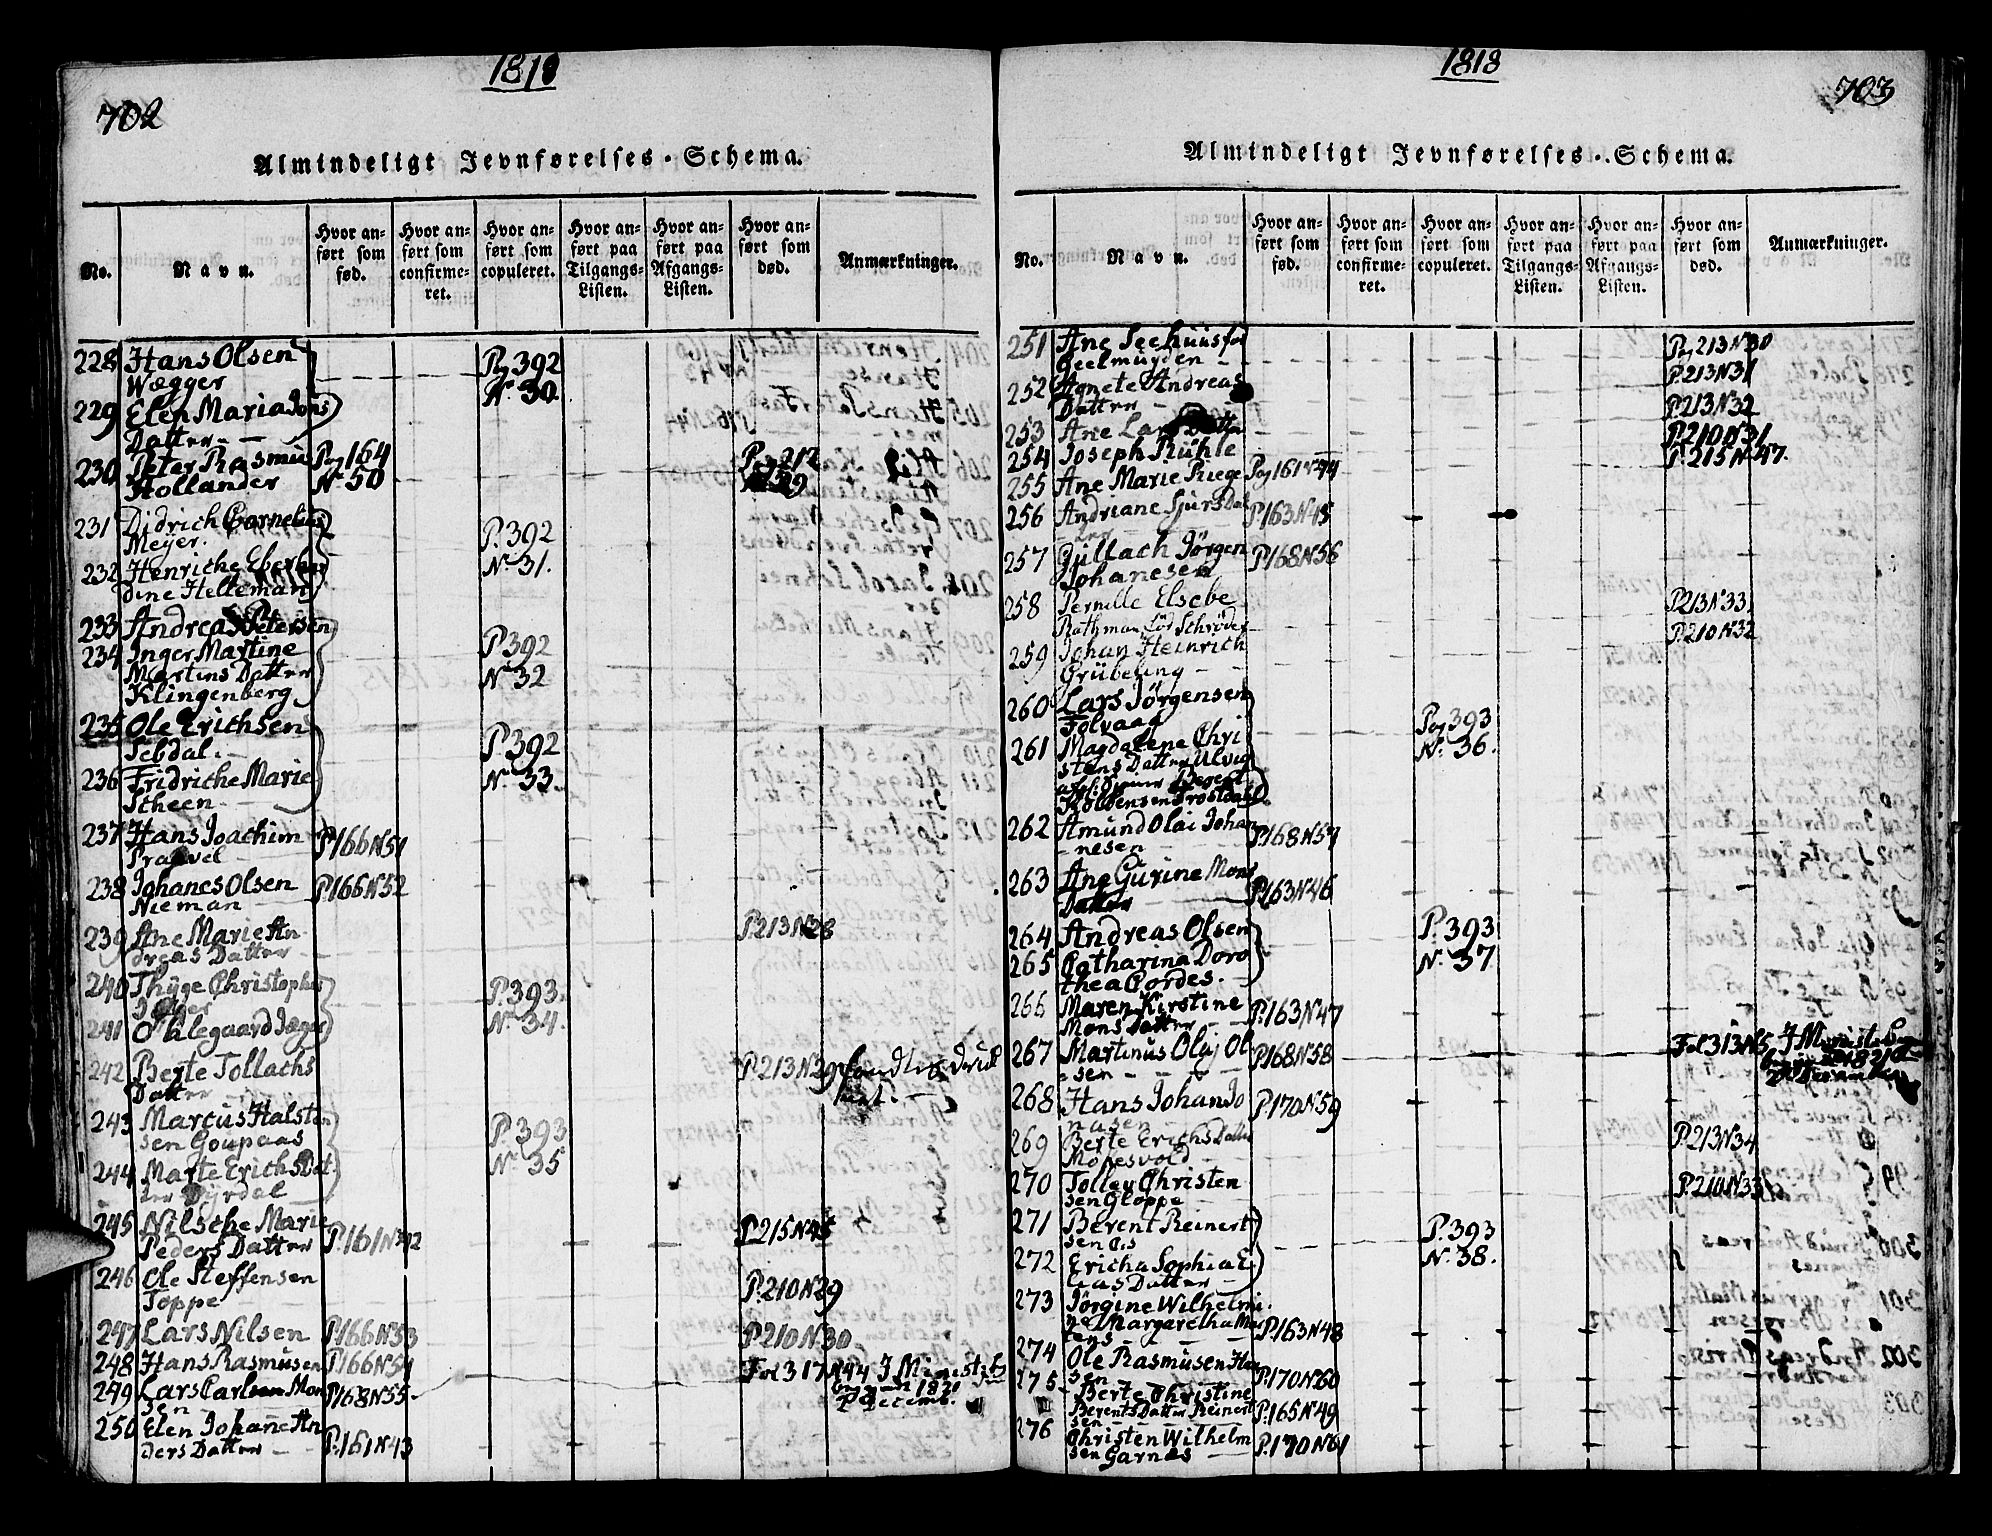 1818
702
Almindeligt Jevnførelses-Schema.
No.
Navn.
Hvor an-
ført som
fød.
Hvor an-
ført som
confirme-
ret.
Hvor an-
ført som
copuleret.
Hvor an-
ført paa
Tilgangs-
Listen.
Hvor an-
ført paa
Afgangs-
Listen.
Hvor an-
ført som
død.
Anmærkninger.
228 Hans Olsen
Wægger
Pag 392
No 30.
229 Elen Maria Jons
Datter
230 Peter Rasmus
Hollander
Pag 164
No 50
Pag 212
231 Didrich Cornelius
Meyer.
P. 392
No 31.
232 Henriche Eberhar
dine Helteman
233 Andreas Petersen
234 Inger Martine
Martins Datter
Klingenberg
P. 392
No 32
235 Ole Erichsen
Sebdal.
P. 392
No 33.
236 Fridriche Marie
Scheen
237 Hans Joachim
P. 166 No 51
238 Johanes Olsen
Nieman
P. 166 No 52
239 Ane Marie An
dreas Datter
P. 213 No 28
240 Thyge Christopher
Jæger
P. 393.
No 34.
241 Oldegaard Jæger
242 Berte Tollachs
Datter
P. 213 No 29
243 Marcus Halsten
sen Goupaas
P. 393
No 35
244 Marte Erichs Dat
ter Myrdal
245 Nilsche Marie
Peders Datter
P. 161 No 42
P. 215 No 45
246 Ole Steffensen
Toppe
P. 210 No 29
247 Lars Nilsen
P. 166 No 53
P. 210 No 30
248 Hans Rasmusen
P. 166 No 54
Fol 317 No 44
249 Lars Carlsen Mon
sen
P. 168 No 55
Decemb.
250 Elen Johane An
ders Datter
P. 161 No 43
1818
703
Almindeligt Jevnførelses-Schema.
No.
Navn.
Hvor an-
ført som
fød.
Hvor an-
ført som
confirme-
ret.
Hvor an-
ført som
copuleret.
Hvor an-
ført paa
Tilgangs-
Listen.
Hvor an-
ført paa
Afgangs-
Listen.
Hvor an-
ført som
død.
Anmærkninger.
251 Ane Seehuusfød
Geelmuyden
Pag 213 No 30
252 Agnete Andreas
Datter
P. 213 No 31
253 Ane Lars Datter
P. 213 No 32
254 Joseph Rühle
P. 210 No 31
255 Ane Marie Riege
Pag 161 No 44
P. 215 No 47.
256 Andriane Sjurs Dat
ter
P. 163 No 45
257 Gullach Jörgen
Johanesen
P. 168 No 56
258 Pernille Elsebe
Rathman fød Schröder
P. 213 No 33
259 Johan Heinrich
Grübeling
P. 210 No 32
260 Lars Jörgensen
Folvaag
Pag 393
No 36.
261 Magdalene Chri
stens Datter Ulvig
262 Amund Olai Johan
nesen
P. 168 No 57
263 Ane Gurine Mons
Datter
P. 163 No 46
264 Andreas Olsen
P. 393
No 37
265 Catharina Doro
thea Cordes.
266 Maren Kirstine
Mons Datter
P. 163 No 47
267 Martinus Olaj Ol
sen
P. 168 No 58
Fol 313 No 5
268 Hans Johan Jo
nasen
P. 170 No 59
269 Berte Erichs Datter
P. 213 No 34
270 Tollev Christen
sen Gloppe
P. 210 No 33
271 Berent Reinert
sen
P. 393
No 38.
272 Ericha Sophia E
lias Datter
273 Jörgine Wilhelmi
ne Margaretha Mar
tens
P. 163 No 48
274 Ole Rasmusen Han
sen
P. 170 No 60
275 Berte Christine
Berents Datter Reinert
sen
P. 165 No 49
276 Christen Wilhelm
sen Garnes
P. 170 No 61